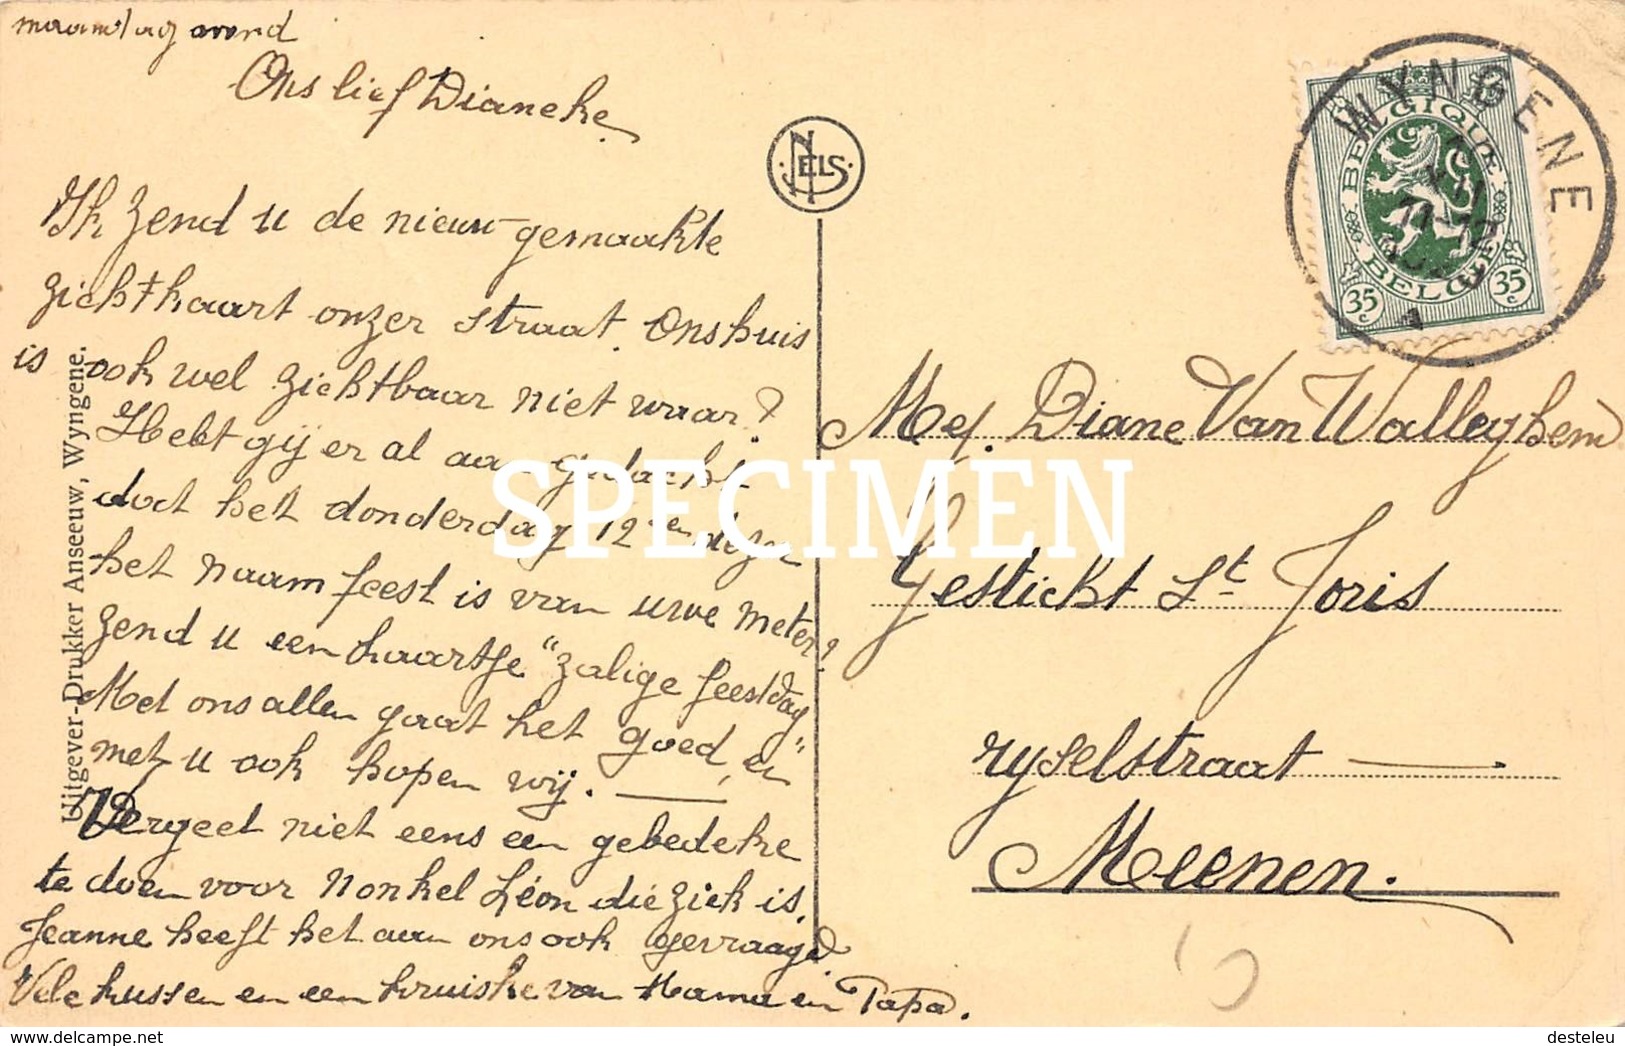 maandag avond
Ons lief Dianeke
Ik zend u de nieuw gemaakte
zichtkaart onzer straat. Ons huis
is ook wel zichtbaar niet waar?
Hebt gij er al aan gedacht
dat het donderdag 12en dezer
het naamfeest is van uwe meter?
zend u een kaartje "zalige feestdag"
Met ons allen gaat het goed, en
met u ook hopen wij.
Vergeet niet eens een gebedeke
te doen voor Nonkel Léon die ziek is.
Jeanne heeft het aan ons ook gevraagd.
Vele kussen en een kruiske van Mama en Papa.
Uitgever-Drukker Anseeuw, Wyngene.
NELS
WYNGENE
BELGIQUE
BELGIE
35 c
35 c
Mej. Diane Van Walleghem
Gesticht St Joris
ryselstraat
Meenen.
SPECIMEN
www.delcampe.net
desteleu